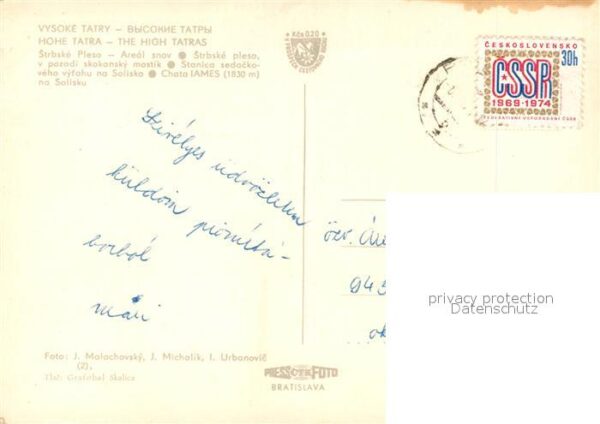 VYSOKÉ TATRY – ВЫСОКИЕ ТАТРЫ
HOHE TATRA – THE HIGH TATRAS
Štrbské Pleso – Areál snov ● Štrbské pleso,
v pozadí skokanský mostík ● Stanica sedačko-
vého výťahu na Solisko ● Chata IAMES (1830 m)
na Solisku
Kčs 0,20
ČESKOSLOVENSKO
30h
ČSSR
1969-1974
FEDERATIVNÍ USPOŘÁDÁNÍ ČSSR
Szívélyes üdvözletem
küldöm pionírtá-
borból
Mári
özv.
945
privacy protection
Datenschutz
Foto: J. Malachovský, J. Michalík, I. Urbanovič
(2),
Tlač: Grafobal Skalica
PRESSFOTO
ČTK
BRATISLAVA